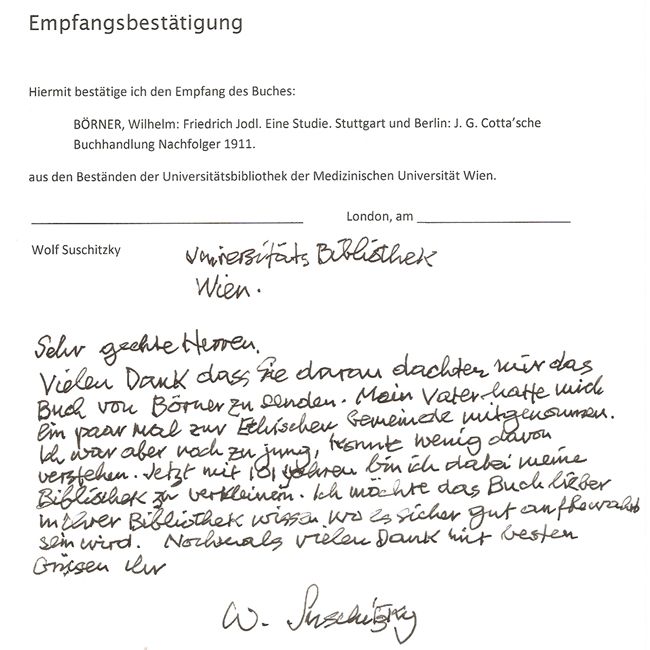 Empfangsbestätigung
Hiermit bestätige ich den Empfang des Buches:
BÖRNER, Wilhelm: Friedrich Jodl. Eine Studie. Stuttgart und Berlin: J. G. Cotta'sche
Buchhandlung Nachfolger 1911.
aus den Beständen der Universitätsbibliothek der Medizinischen Universität Wien.
London, am
Wolf Suschitzky
Universitäts Bibliothek
Wien.
Sehr geehrte Herren.
Vielen Dank dass Sie daran dachten mir das
Buch von Börner zu senden. Mein Vater hatte mich
ein paar mal zur Ethischen Gemeinde mitgenommen.
Ich war aber noch zu jung, konnte wenig davon
verstehen. Jetzt mit 101 Jahren bin ich dabei meine
Bibliothek zu verkleinern. Ich möchte das Buch lieber
in Ihrer Bibliothek wissen wo es sicher gut aufbewahrt
sein wird. Nochmals vielen Dank mit besten
Grüssen Ihr
W. Suschitzky